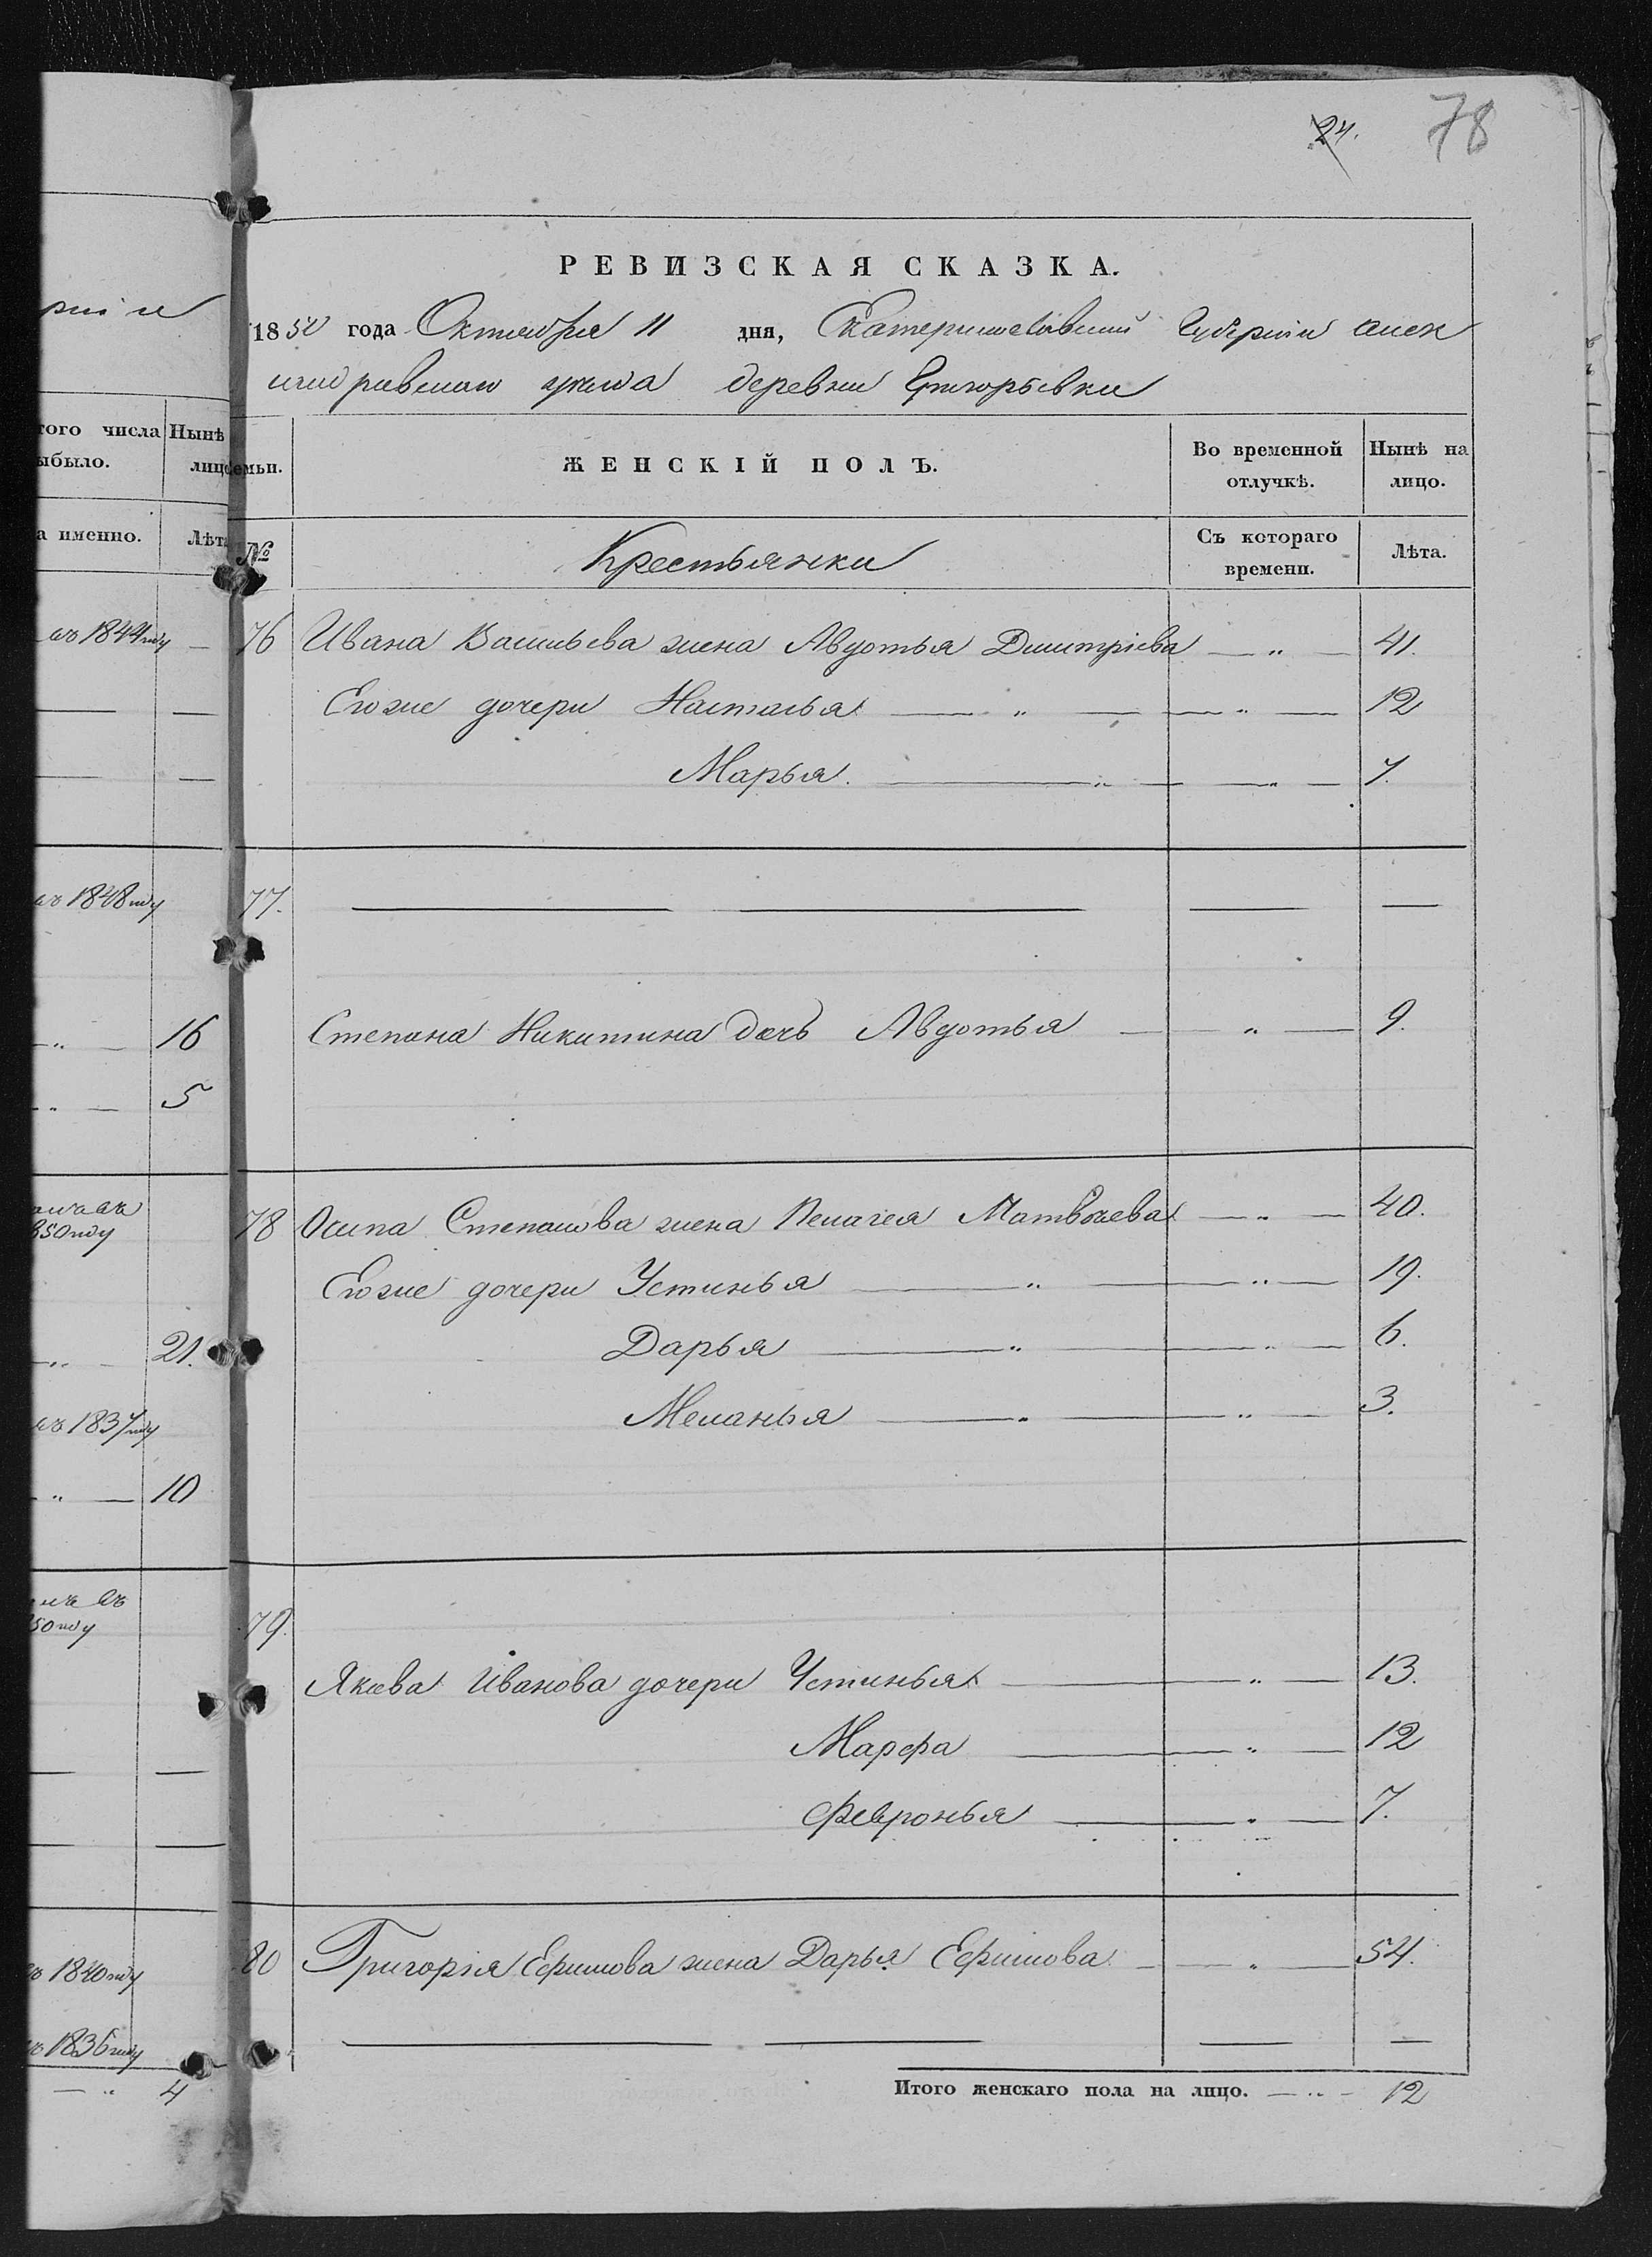 24. 78
РЕВИЗСКАЯ СКАЗКА.
1850 года Октября 11 дня, Екатеринославской Губернiи Алек
сандровскаго уезда деревни Григорьевки
того числа Нынѣ
ыбыло. лицо
семьи. ЖЕНСКІЙ ПОЛЪ. Во временной отлучкѣ. Нынѣ на лицо.
а именно. Лѣта
№ Крестьянки Съ котораго времени. Лѣта.
въ 1844 году
76 Ивана Васильева жена Авдотья Дмитрiева — „ — 41.
Егоже дочери Настасья — „ — — „ — 12
Марья. — „ — — „ — 7.
въ 1848 году
77.
16
Степана Никитина дочь Авдотья — „ — 9.
5
850 году
78 Осипа Степанова жена Пелагея Матвѣева — „ — 40.
Егоже дочери Устинья — „ — — „ — 19.
21.
Дарья — „ — — „ — 6.
въ 1837 году
Меланья — „ — — „ — 3.
10
въ
50 году
79.
Якова Иванова дочери Устинья — „ — 13.
Марфа — „ — 12
Февронья — „ — 7.
въ 1840 году
80 Григорiя Ефимова жена Дарья Ефимова — „ — 54.
въ 1836 году
4
Итого женскаго пола на лицо. — „ — 12